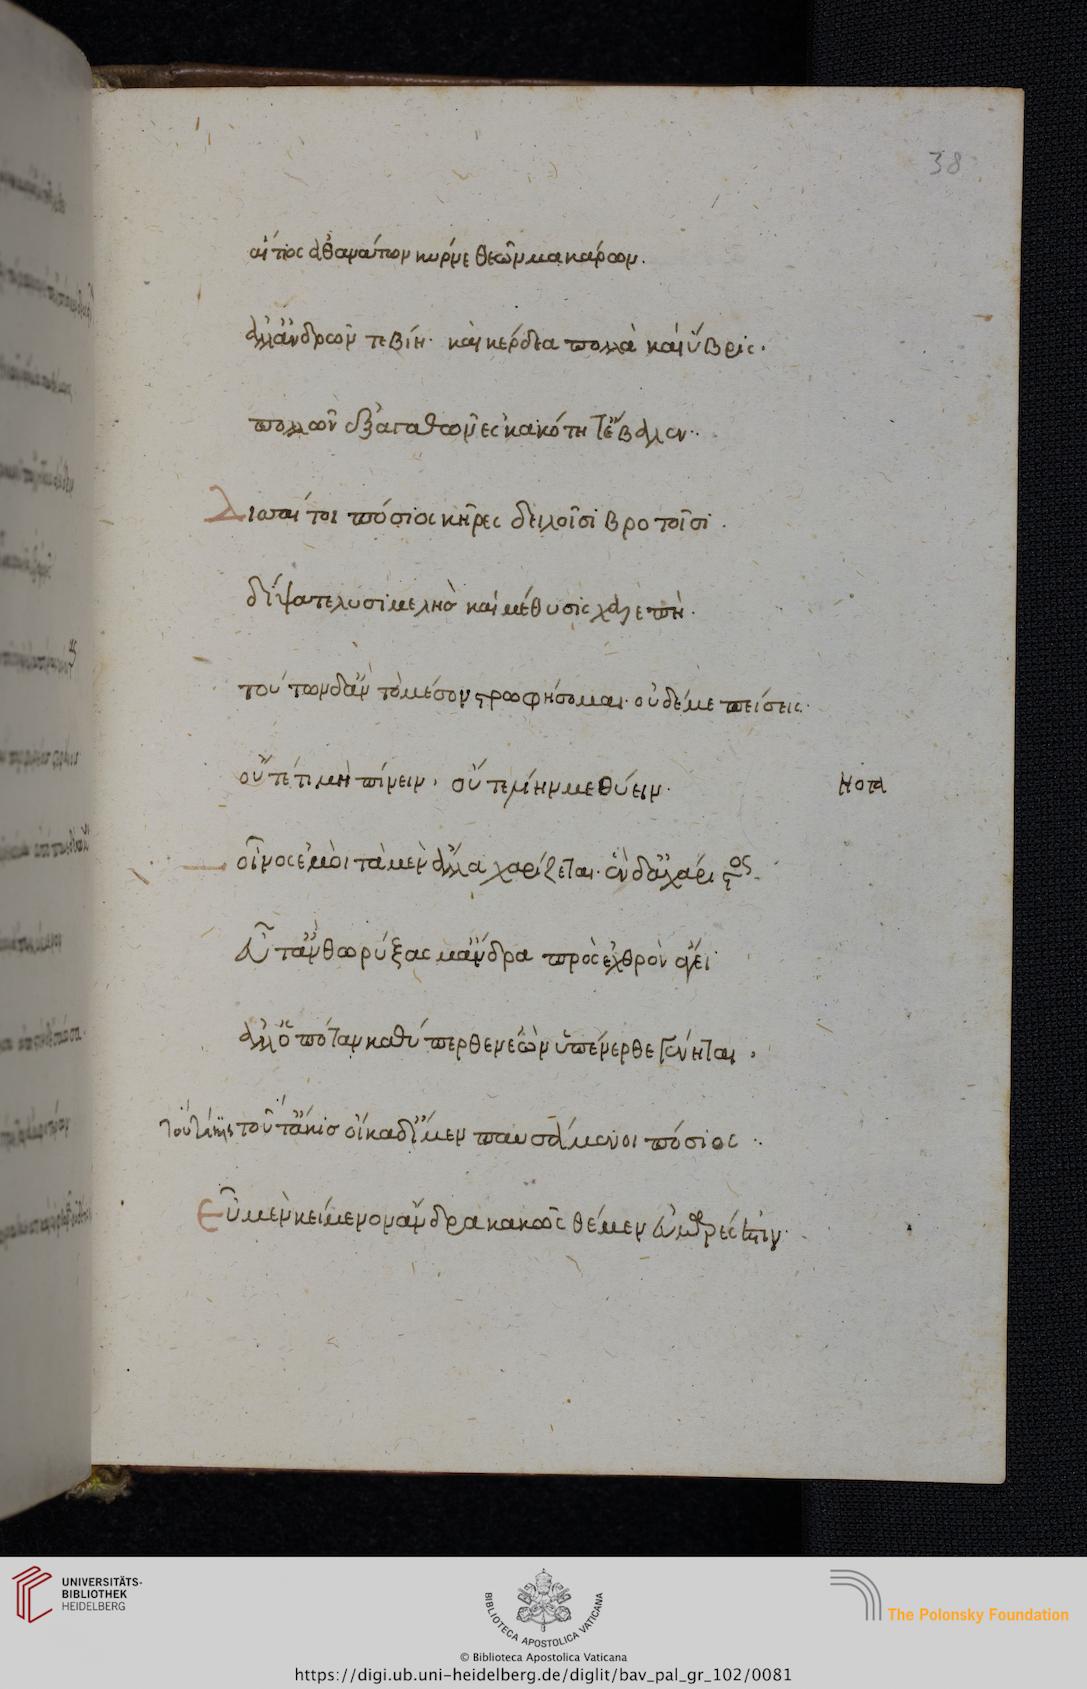 38
αἴτιος ἀθανάτων κύρνε θεῶν μακάρων.
ἀλλ' ἀνδρῶν τε βίη· καὶ κέρδεα πολλὰ καὶ ὕβρις.
πολλῶν ἐξ ἀγαθῶν ἐς κακότητ' ἔβαλεν..
Δισσαί τοι πόσιος κῆρες δειλοῖσι βροτοῖσι.
δίψα τε λυσιμελὴσ καὶ μέθυσις χαλεπὴ.
τούτων δ' ἂν τὸ μέσον στρωφήσομαι· οὐδέ με πείσεις.
οὔτέ τι μὴ πίνειν, οὔτε μ' ἦν μεθύειν. Nota
οἶνος ἐμοὶ τὰ μὲν ἄλλα χαρίζεται. ἓν δ' ἀχάριστος.
εὖτ' ἂν θωρύξας μ' ἄνδρα πρὸς ἐχθρὸν ἄγει
ἀλλ' ὅποταν καθύπερθεν ἐὼν ὑπένερθε γένηται,
τουτάκις τοῦτάκισ οἴκαδ' ἴμεν παυσάμενοι πόσιος ..
Εὖ μὲν κείμενον ἄνδρα κακῶς θέμεν εὐμαρές ἐστιν.
UNIVERSITÄTS-
BIBLIOTHEK
HEIDELBERG
BIBLIOTECA APOSTOLICA VATICANA
The Polonsky Foundation
© Biblioteca Apostolica Vaticana
https://digi.ub.uni-heidelberg.de/diglit/bav_pal_gr_102/0081